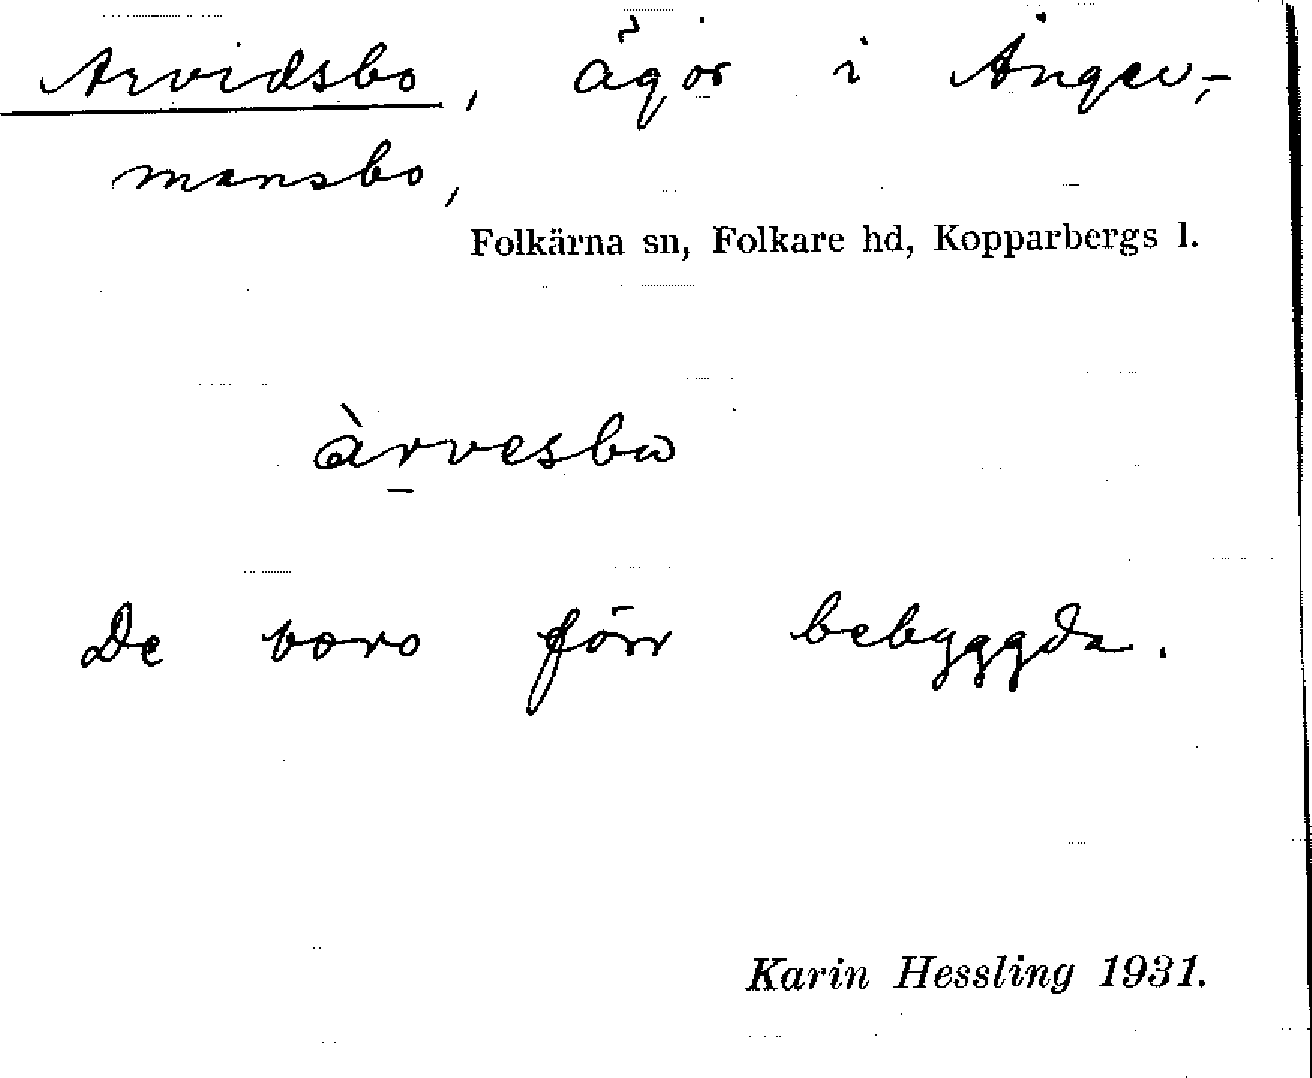 Arvidsbo, ägor i Anger-
mansbo,
Folkärna sn, Folkare hd, Kopparbergs l.
àrvesbω
De voro förr bebyggda.
Karin Hessling 1931.